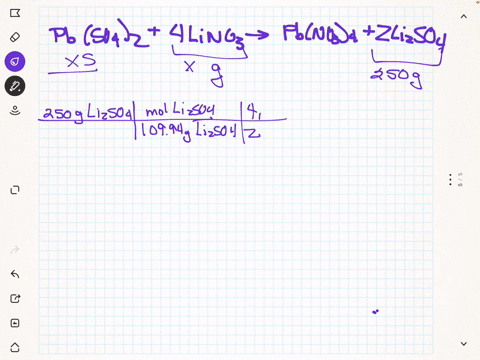 Pb(SO4)2 + 4LiNO3 → Pb(NO3)4 + 2Li2SO4
XS x g 250g
250g Li2SO4 | mol Li2SO4 | 4
109.94g Li2SO4 | 2